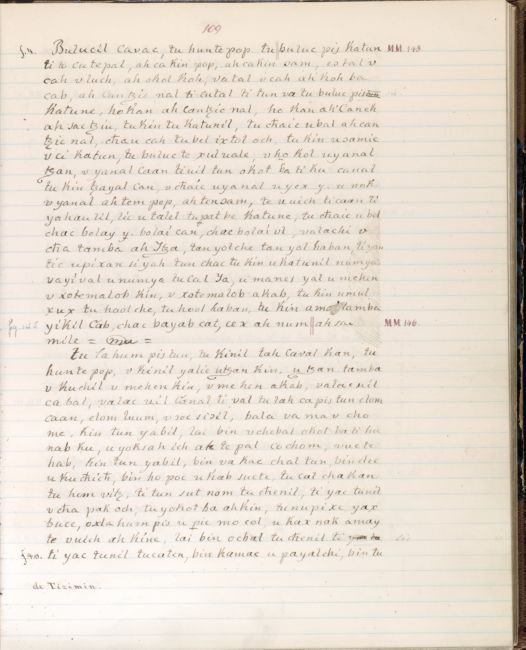 109
§4. Buluc il Cavac, tu hunte pop. tu buluc pis Katun MM 145
ti lo cutepal, ah cakin pop, ah cakin sam, es tal v
cah v luch, ah okol koh, valal v cah ah koh ba
cab, ah Cantzic nal ti cutal ti tun va tu buluc pis
Katune, ho Kan ah Cantzic nal, ho kan ah Canek
ah sac tziu, tu kin tu katunil, tu chaic u bal ah can
tzic nal, chau cah tu bel ix tol och, tu kin u samic
v ci katun, tu buluc te xul uale, v ho kol u yanal
tzan, v yanal Caan ti uil tun okot ba ti ku canal
tu kin tzayal Can, v chaic u yanal u yex y. u nok
v yanal ah tem pop, ah ten sam, te u uich ti caan ti
ya hau lil, lic u talel tu pat be Katune, tu chaic u bel
chac bolay y. bolai can, chac bolai ul, valachi v
cha tamba ah Itza, tan yol che tan yol haban,
tic u pixan si yah tun chac tu kin u katunil numya
vayi val u numya tu Cal Ya, u manes yal u mehen
v xotemalob kin, v xotemalob akab, tu kin u mul
xux tu hool che, tu hool haban, tu kin tamba
yikil Cab, chac bayab cat, cex ah num ah sau MM 146.
mile =
Tu lahum pis tun, tu kinil lah Cavac Kan, tu
hunte pop, v kinil yalic utzan kin. u tzan tamba
v kuchil v mehen kin, v mehen akab, valac uil
ca bal, valac uil Canal ti val tu lah ca pis tun elom
caan, elom luum, v soc sisil, bala va ma v cho
me, kin tun yabil, lai bin v chebal okol ba ti ku
nab ku, u yoksah ich te pal co chom, vuc te
hab, kin tun yabil, bin va kac chal tun, bin elec
u ku chich, bin ho poc u kab sucte, tu cal cha kan
tu hem vitz, ti tun sut nom tu chenil, ti yac tunil
v cha pak och, tu yokot ba ahkin, tu nupixe yax
buce, oxlahum pis u pic mo col, u kax nak amay
te vuich ah kine, lai bin ocbal tu chenil ti
§40. ti yac tunil tucaten, bin kamac u payalchi, bin tu
de Tizimin.